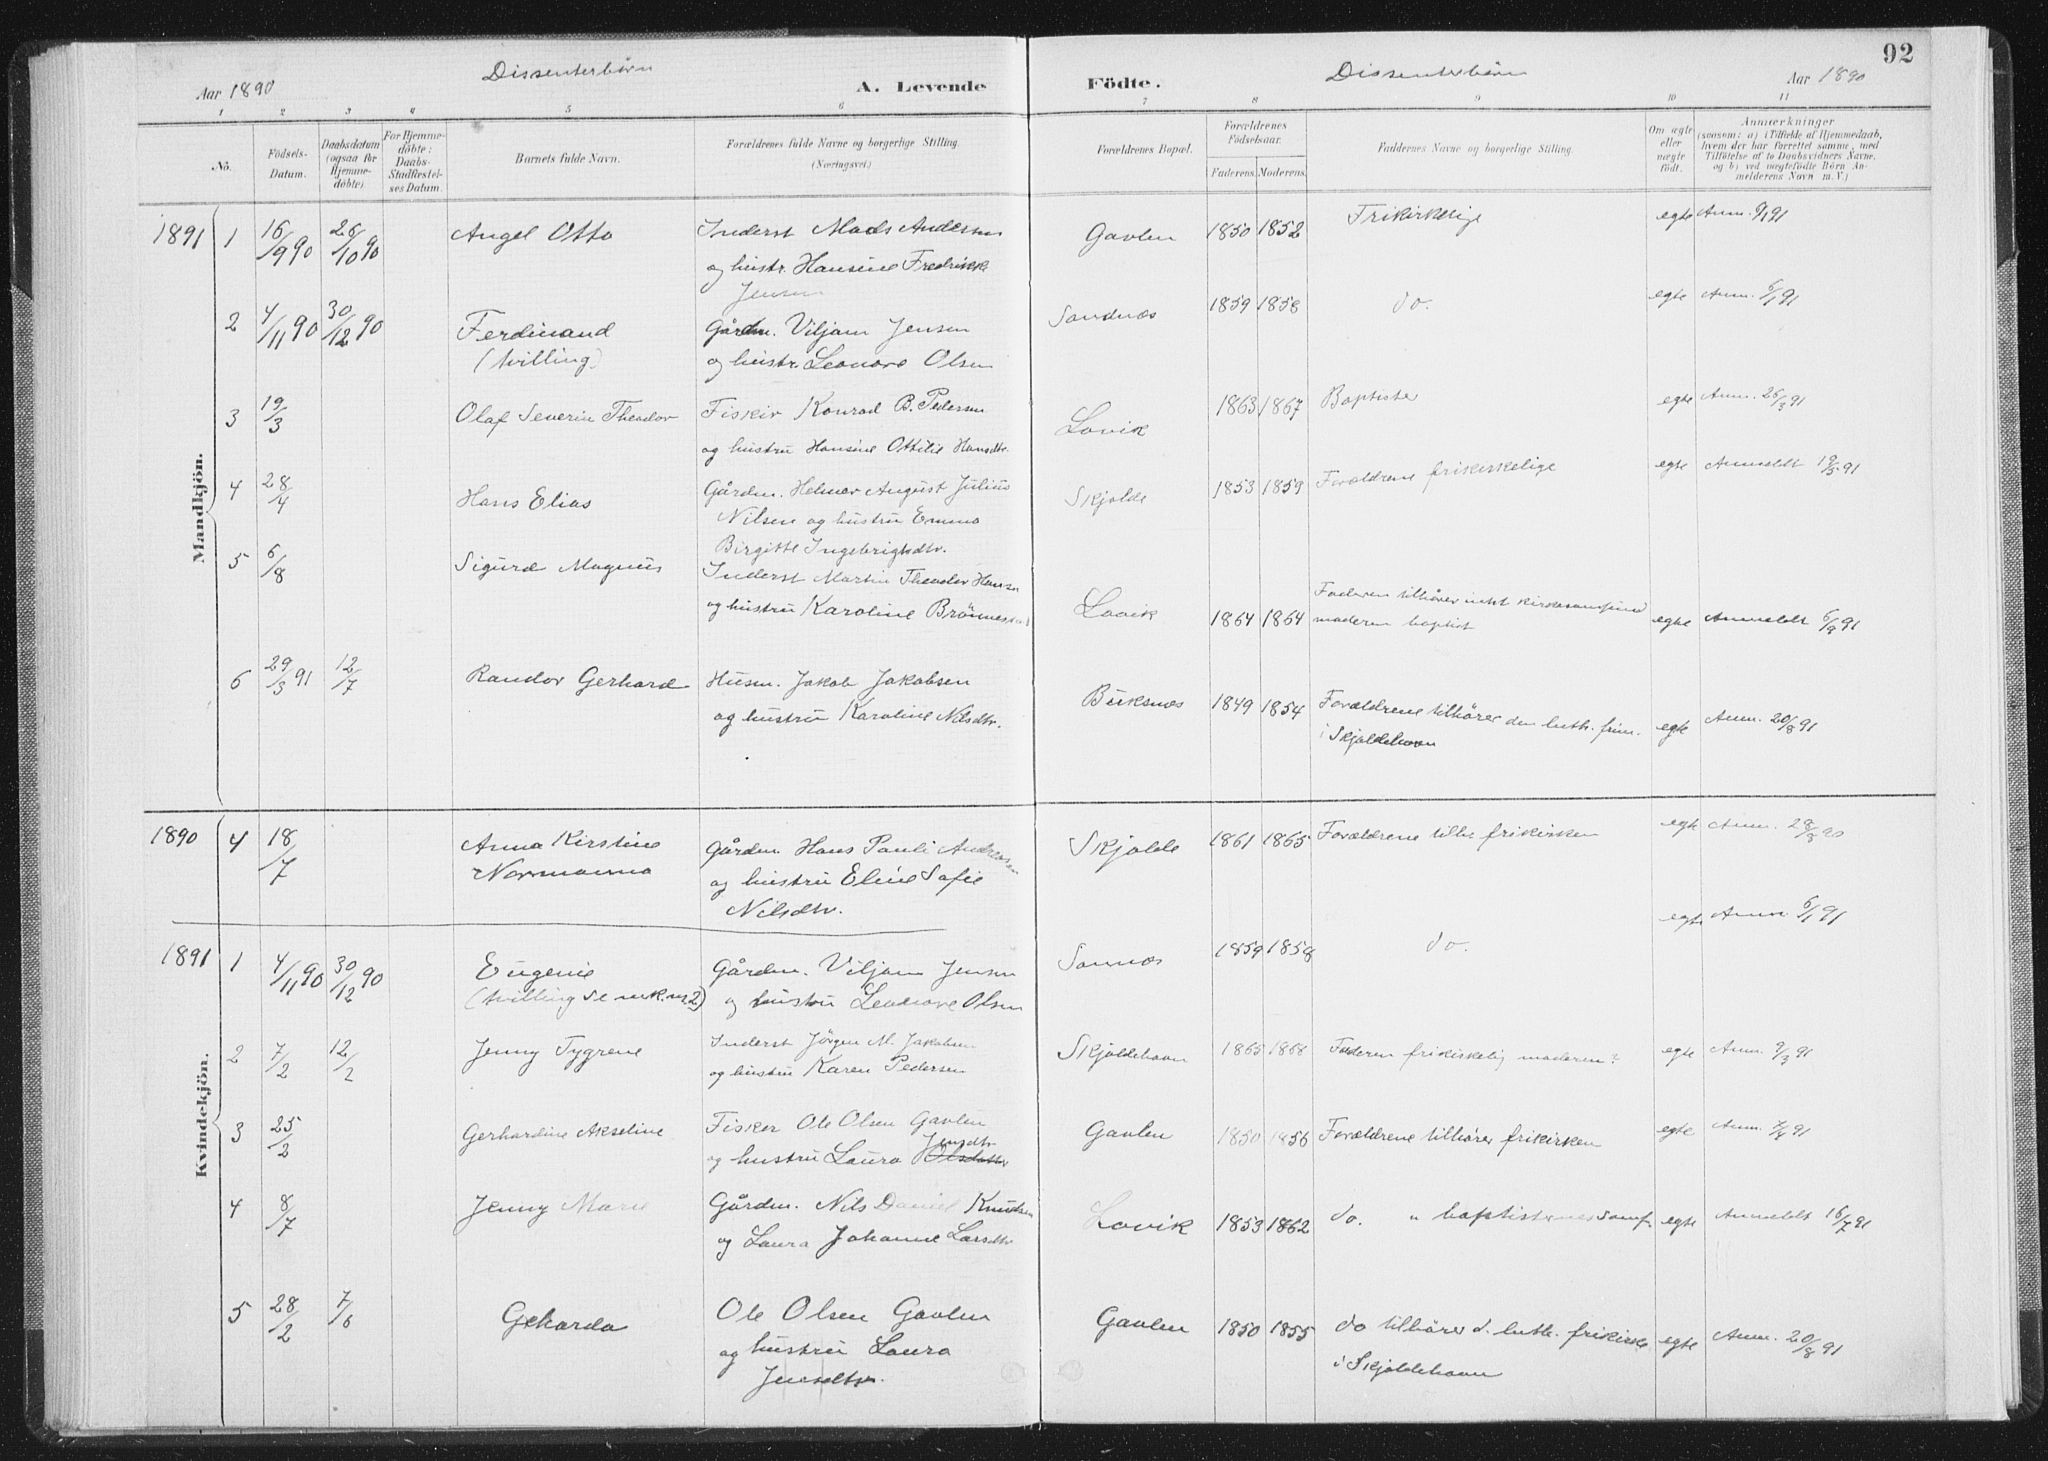 92
Dissenterbörn
Dissenterbörn
Aar 1890
A. Levende
Födte.
Aar 1890
1 2 3 4 5 6 7 8 9 10 11
No.
Födsels-Datum.
Daabsdatum (ogsaa for Hjemme-döbte).
For Hjemme-döbte: Daabs-Stadfæstel-ses Datum.
Barnets fulde Navn.
Forældrenes fulde Navne og borgerlige Stilling. (Næringsvei.)
Forældrenes Bopæl.
Forældrenes Födselsaar.
Faderens. Moderens.
Faddernes Navne og borgerlige Stilling.
Om ægte eller uægte födt.
Anmærkninger
(saasom: a) i Tilfælde af Hjemmedaab, hvem der har forrettet samme, med Tilföielse af to Daabsvidners Navne, og b) ved uægtefödte Börn An-melderens Navn m. V.)
Mandkjön.
1891 1 16/9 90 26/10 90 Angel Otto Inderst Mads Andersen Gavlen 1850 1852 Frikirkelige egte Anm. 9/1 91
og hustr. Hansine Fredrikke
Jensen
2 4/11 90 30/12 90 Ferdinand Gårdm. Viljam Jensen Sandnæs 1859 1858 do. egte Anm. 6/1 91
(tvilling) og hustr. Leonore Olsen
3 19/3 Olaf Severin Theodor Fisker Konrad B. Pedersen Lovik 1863 1867 Baptister egte Anm. 26/3 91
og hustru Hansine Ottilie Hansdtr.
4 28/4 Hans Elias Gårdm. Helmer August Julius Skjolde 1853 1859 Forældrene frikirkelige egte Anmeldt 19/5 91
Nilsen og hustru Emma
Birgitte Ingebrigtsdtr.
5 6/8 Sigurd Magnus Inderst Martin Theodor Hansen Lovik 1864 1864 Faderen tilhører intet kirkesamfund egte Anmeldt 6/9 91
og hustru Karoline moderen baptist
6 29/3 91 12/7 Randor Gerhard Husm. Jakob Jakobsen Buksnes 1849 1854 Forældrene tilhører den luth. frim. egte Anm. 20/8 91
og hustru Karoline Nilsdtr. i Skjoldehavn
Kvindekjön.
1890 4 18/7 Anna Kirstine Gårdm Hans Pauli Andreasen Skjolde 1861 1865 Forældrene tilh. frikirken egte Anm. 28/8 90
Normanna og hustru Eline Sofie
Nilsdtr.
1891 1 4/11 90 30/12 90 Eugenie Gårdm. Viljam Jensen Sannæs 1859 1858 do. egte Anm 6/1 91
(tvilling se mk. nr 2) og hustru Leonore Olsen
2 7/2 12/2 Jenny Tygrene Inderst Jörgen M. Jakobsen Skjoldehavn 1865 1868 Faderen frikirkelig moderen? egte Anm. 9/3 91
og hustru Karen Pedersen
3 25/2 Gerhardine Akseline Fisker Ole Olsen Gavlen Gavlen 1850 1856 Forældrene tilhører frikirken egte Anm. 7/4 91
og hustru Laura Olsdatter Jensdtr
4 8/7 Jenny Marie Gårdm. Nils Daniel Knudsen Lovik 1853 1862 do. " baptisternes samf. egte Anmeldt 16/7 91
og Laura Johanne Larsdtr
5 28/2 7/6 Geharda Ole Olsen Gavlen Gavlen 1850 1855 do tilhører d. luth. frikirke egte Anm. 20/8 91
og hustru Laura i Skjoldehavn
Jensdtr.